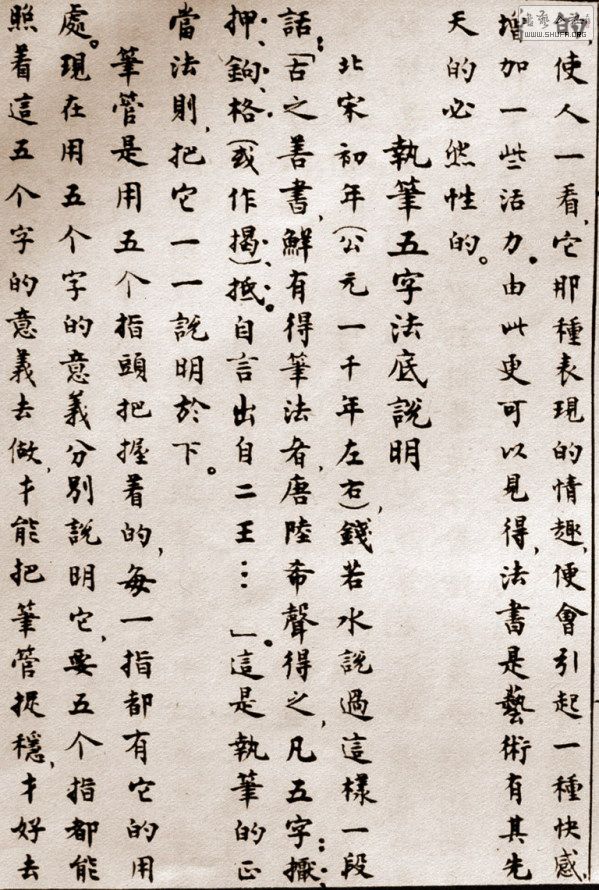 的,使人一看,它那種表現的情趣,便會引起一種快感,
增加一些活力。由此更可以見得,法書是藝術有其先
天的必然性的。
執筆五字法底說明
北宋初年(公元一千年左右),錢若水說過這樣一段
話:「古之善書,鮮有得筆法者,唐陸希聲得之,凡五字:擫、
押、鉤、格(或作揭)、抵。自言出自二王⋯」。這是執筆的正
當法則,把它一一說明於下。
筆管是用五个指頭把握着的,每一指都有它的用
處。現在用五个字的意義分別說明它,要五个指都能
照着這五个字的意義去做,才能把筆管捉穩,才好去
WWW.SHUFA.ORG